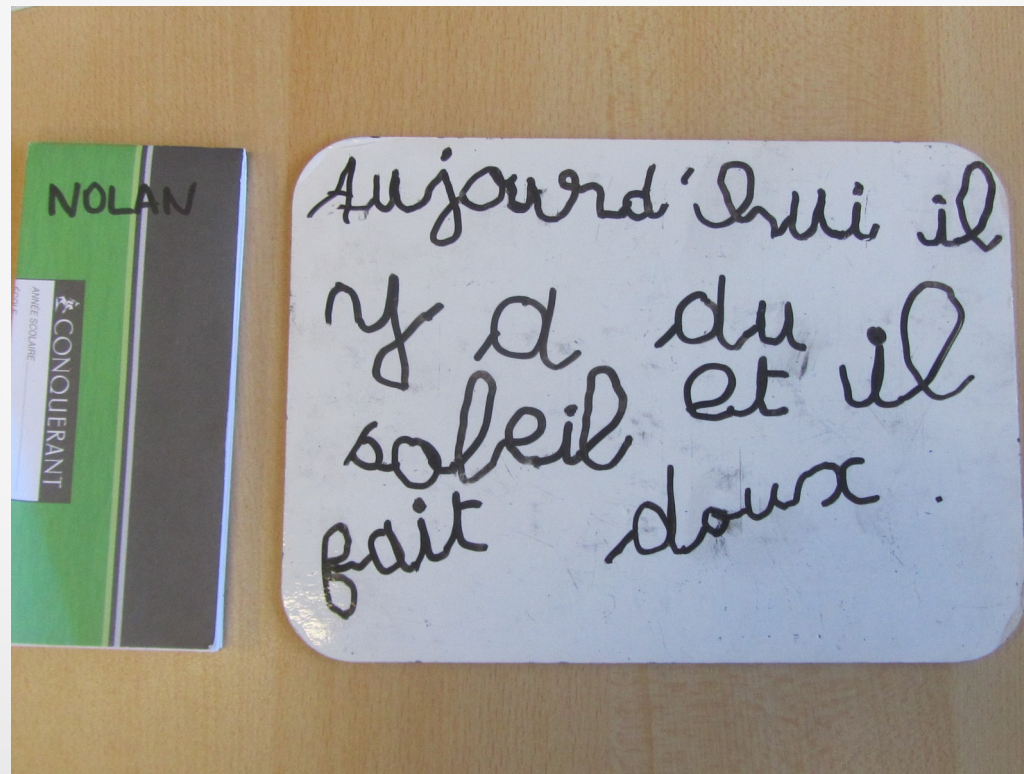 NOLAN
CONQUERANT
ANNÉE SCOLAIRE
ÉCOLE
Aujourd'hui il
y a du
soleil et il
fait doux.